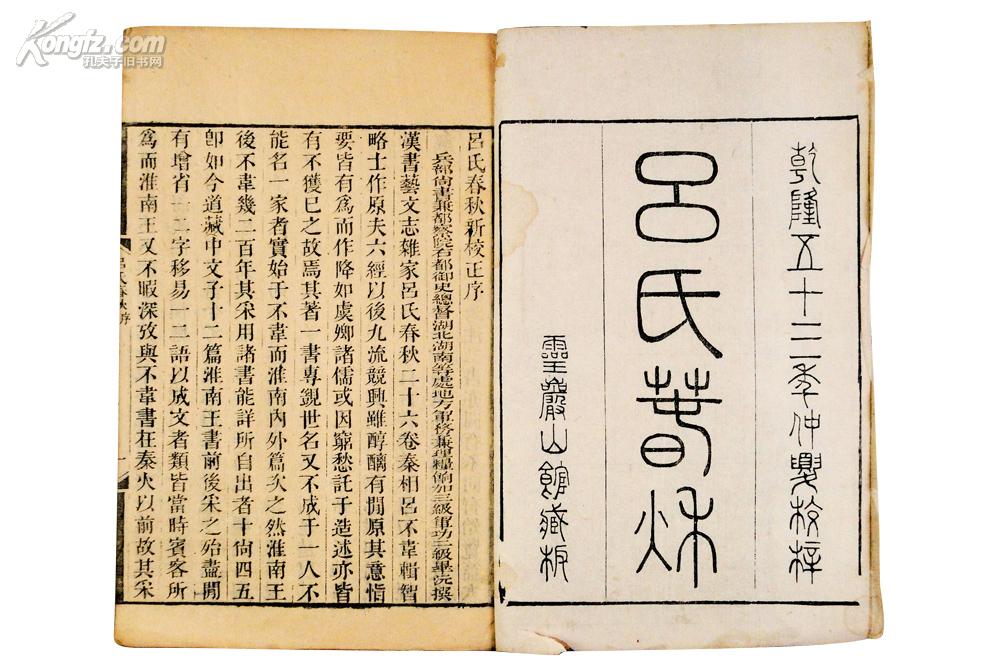 Kongfz.com
孔夫子旧书网
乾隆五十三年仲夏校梓
呂氏春秋
靈巖山館藏板
呂氏春秋新校正序
兵部尙書兼都察院右都御史總督湖北湖南等處地方軍務兼理糧餉加三級軍功三級畢沅撰
漢書藝文志雜家呂氏春秋二十六卷秦相呂不韋輯智
略士作原夫六經以後九流競興雖醇醨有閒原其意恉
要皆有爲而作降如虞卿諸儒或因窮愁託于造述亦皆
有不獲已之故焉其著一書專覬世名又不成于一人不
能名一家者實始于不韋而淮南內外篇次之然淮南王
後不韋幾二百年其采用諸書能詳所自出者十尙四五
卽如今道藏中文子十二篇淮南王書前後采之殆盡閒
有增省一二字移易一二語以成文者類皆當時賓客所
爲而淮南王又不暇深攷與不韋書在秦火以前故其采
呂氏春秋序
一